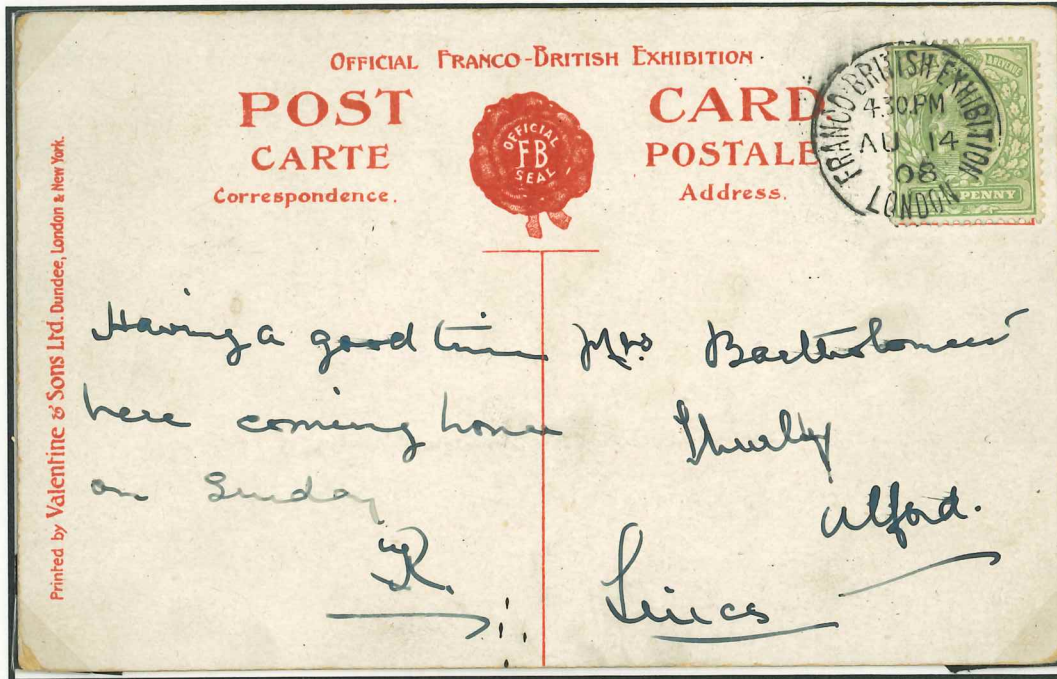 OFFICIAL FRANCO-BRITISH EXHIBITION.
POST CARD
CARTE POSTALE
Correspondence. Address.
OFFICIAL
FB
SEAL
FRANCO-BRITISH-EXHIBITION
4.30.PM
AU 14
08
LONDON
PENNY
Printed by Valentine & Sons Ltd. Dundee, London & New York.
Having a good time
here coming home
on Sunday
Mrs Bartholomew
Thurlby
Alford.
Lincs